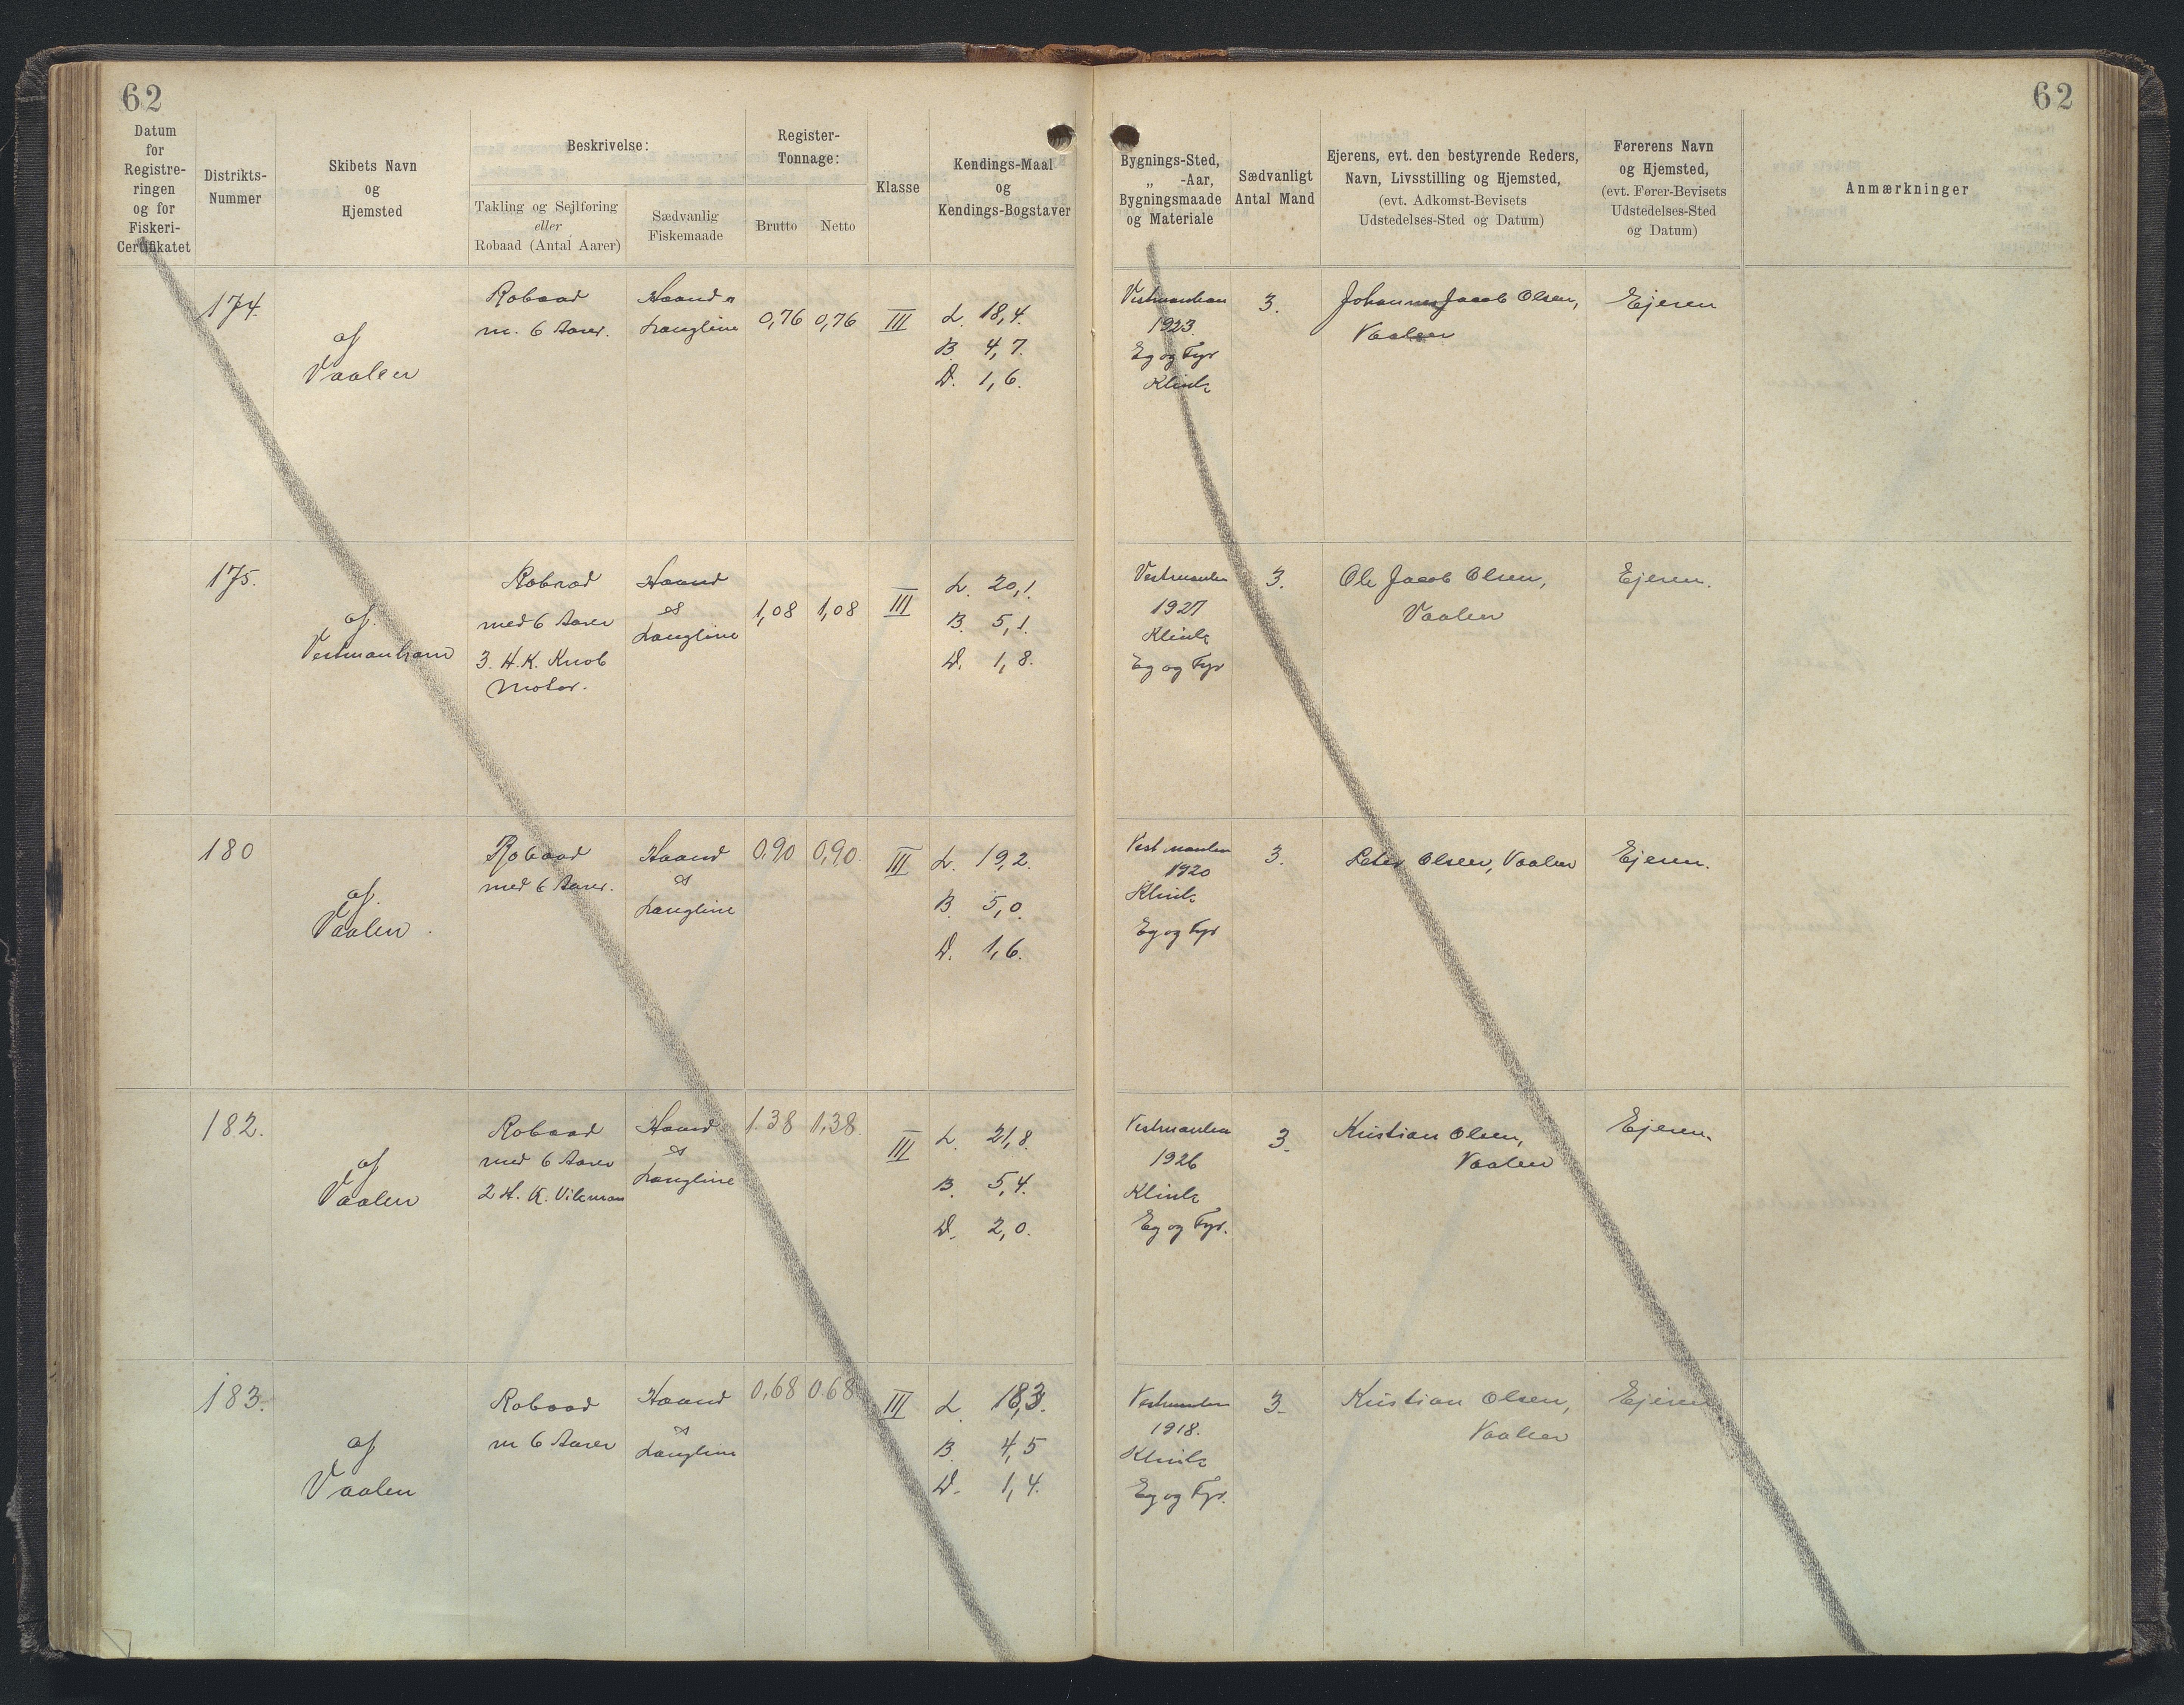 62
62
Datum
for
Registre-
ringen
og for
Fiskeri-
Certifikatet
Distrikts-
Nummer
Skibets Navn
og
Hjemsted
Beskrivelse:
Takling og Sejlføring
eller
Robaad (Antal Aarer)
Sædvanlig
Fiskemaade
Register-
Tonnage:
Brutto
Netto
Klasse
Kendings-Maal
og
Kendings-Bogstaver
Bygnings-Sted,
„ -Aar,
Bygningsmaade
og Materiale
Sædvanligt
Antal Mand
Ejerens, evt. den bestyrende Reders,
Navn, Livsstilling og Hjemsted,
(evt. Adkomst-Bevisets
Udstedelses-Sted og Datum)
Førerens Navn
og Hjemsted,
(evt. Fører-Bevisets
Udstedelses-Sted
og Datum)
Anmærkninger
174.
af
Vaalen
Robaad
m. 6 Aarer.
Haand
Langline
0,76
0,76
III
L. 18,4.
B. 4,7.
D. 1,6.
Vestmanhavn
1923.
Eg og Fyr
Klink
3.
Johannes Jacob Olsen,
Vaalen
Ejeren
175.
af
Vestmanhavn
Robaad
med 6 Aarer
3. H.K. Knob
Motor.
Haand
og
Langline
1,08
1,08
III
L. 20,1.
B. 5,1.
D. 1,8.
Vestmanhn
1927
Klink
Eg og Fyr
3.
Ole Jacob Olsen,
Vaalen
Ejeren.
180
af
Vaalen.
Robaad
med 6 Aarer.
Haand
og
Langline
0,90
0,90.
III
L. 19,2.
B. 5,0.
D. 1,6.
Vestmanhn
1920
Klink
Eg og Fyr
3.
Peter Olsen, Vaalen
Ejeren.
182.
af
Vaalen
Robaad
med 6 Aarer
2 H. K. Vikman
Haand
og
Langline
1.38
1,38.
III
L. 21,8.
B. 5,4.
D. 2,0.
Vestmanhn
1926
Klink
Eg og Fyr.
3.
Kristian Olsen,
Vaalen
Ejeren.
183.
af
Vaalen
Robaad
m 6 Aarer
Haand
og
Langline
0,68
0.68
III
L. 18,3.
B. 4,5
D. 1,4.
Vestmanhn
1918.
Klink
Eg og Fyr.
3.
Kristian Olsen,
Vaalen
Ejeren